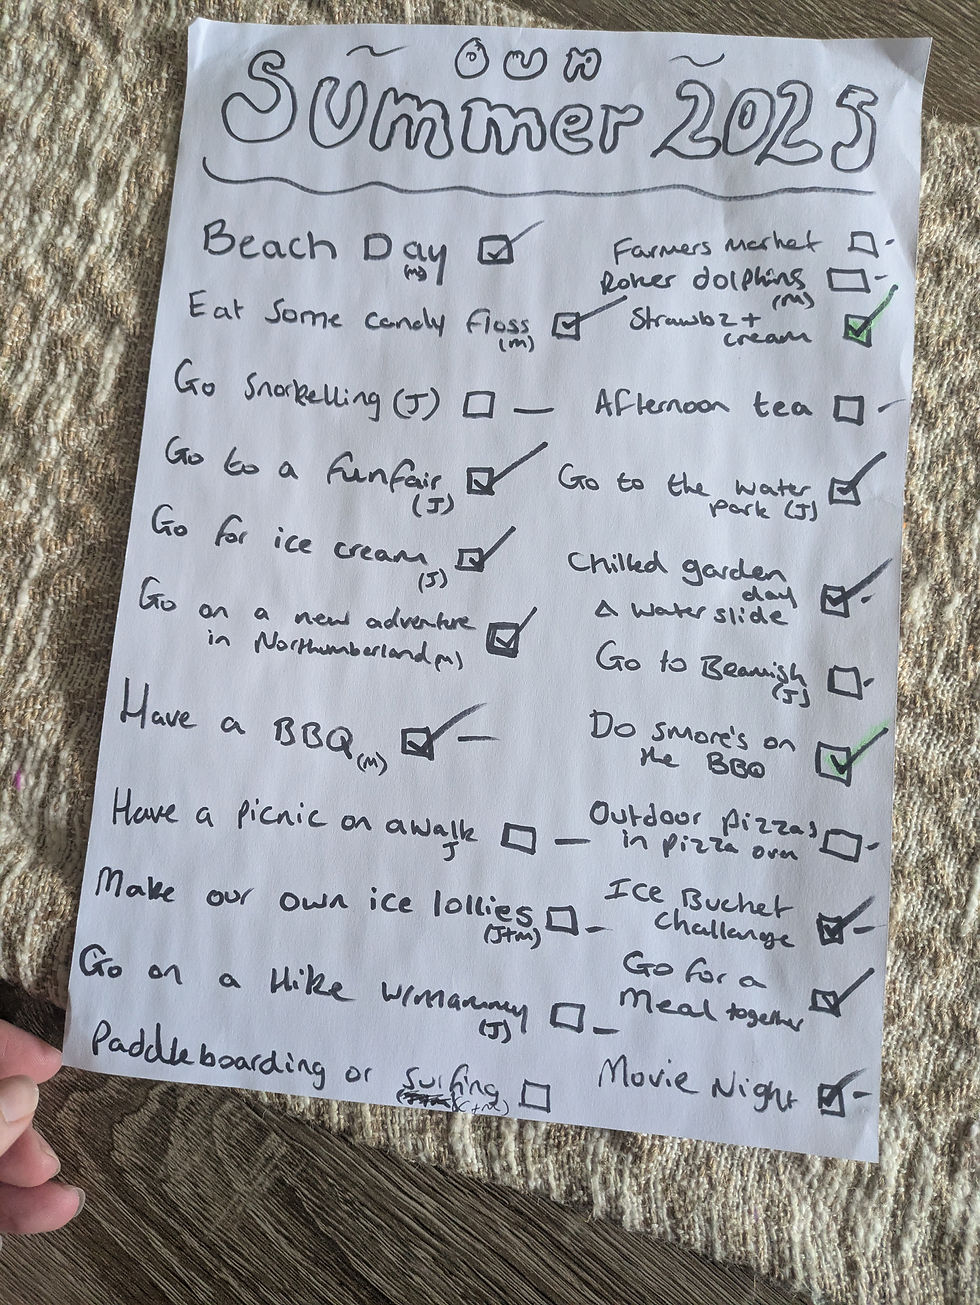 OUR
Summer 2025
Beach Day
(M)
Eat some candy floss
(M)
Go Snorkelling (J)
Go to a funfair
(J)
Go for ice cream
(J)
Go on a new adventure
in Northumberland (M)
Have a BBQ (M)
Have a picnic on a walk
J
Make our own ice lollies
(J+M)
Go on a Hike w/Mammy
(J)
Paddleboarding or surfing
(C+M)
Farmers Market
Roker dolphins
(M)
Strawbz +
cream
Afternoon tea
Go to the water
park (J)
Chilled garden
day
& water slide
Go to Beamish
(J)
Do smore's on
the BBQ
Outdoor pizzas
in pizza oven
Ice Bucket
Challange
Go for a
Meal together
Movie Night